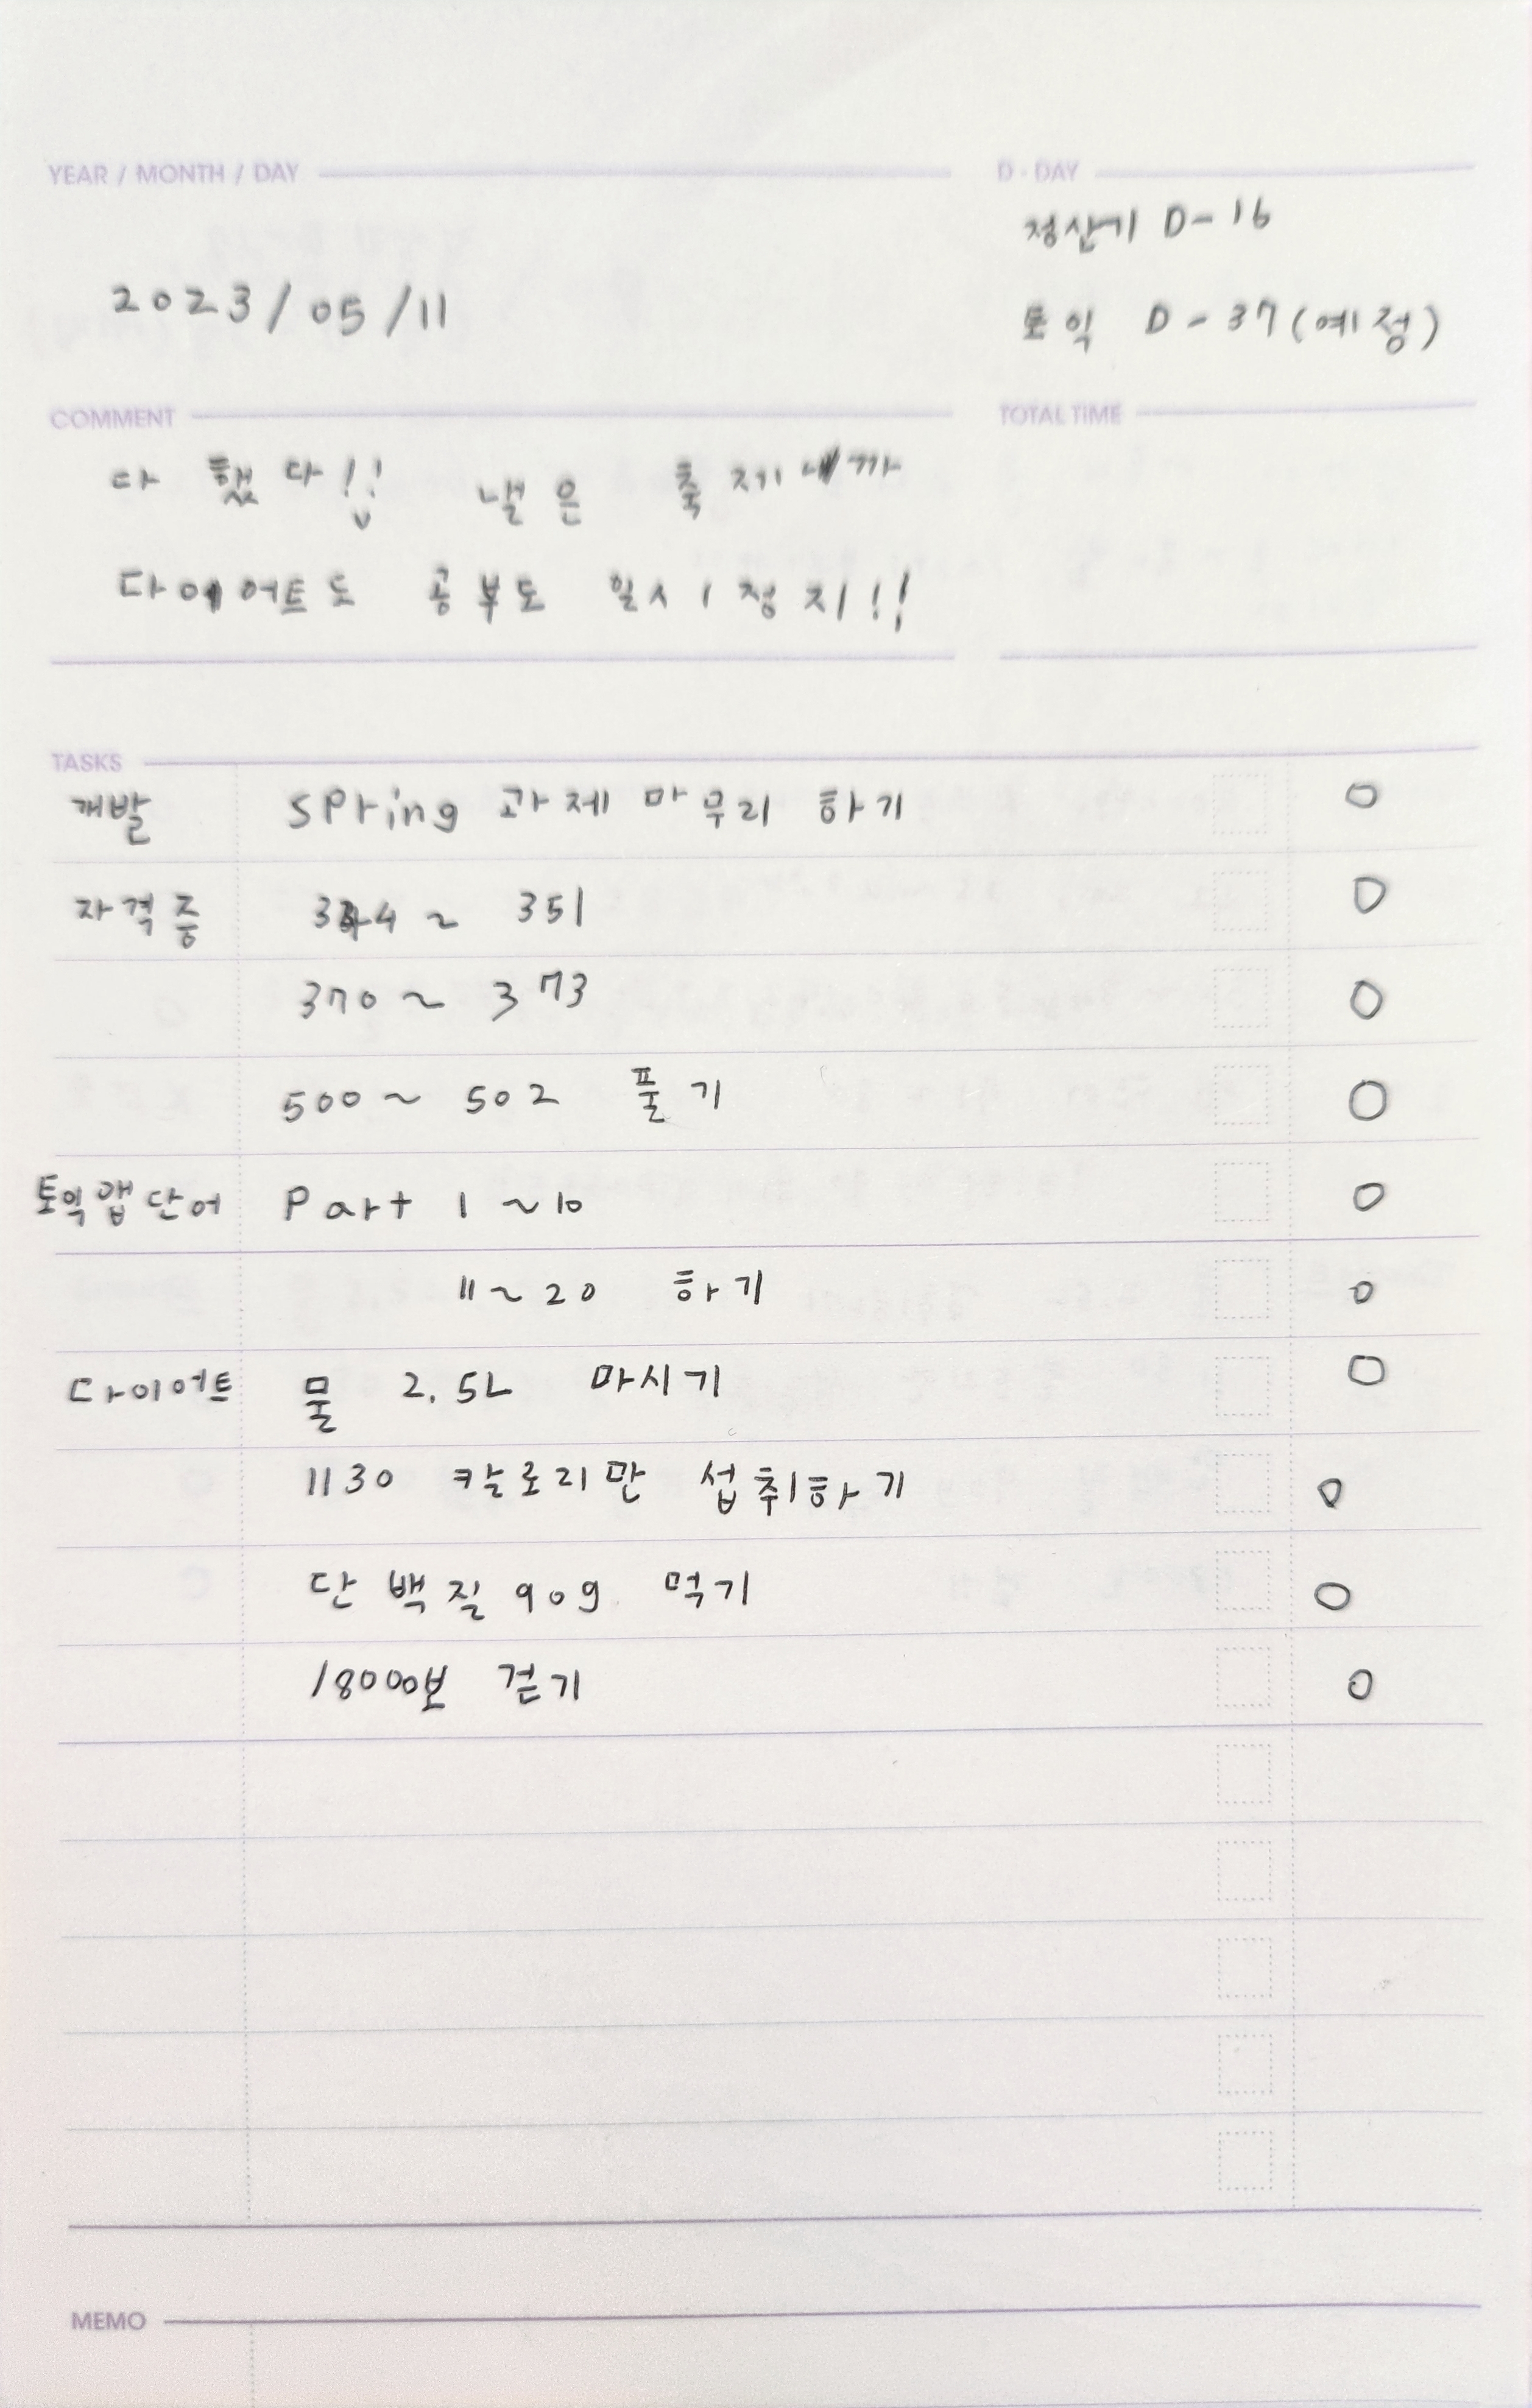 YEAR / MONTH / DAY
2023/05/11
D-DAY
정산기 D-16
토익 D-37(예정)
COMMENT
다 했다!! 낼은 축제니까
다이어트도 공부도 일시정지!!
TOTAL TIME
TASKS
개발 SPring 과제 마무리 하기 O
자격증 344~ 351 O
370~ 373 O
500~ 502 풀기 O
토익앱단어 Part 1~10 O
11~20 하기 O
다이어트 물 2.5L 마시기 O
1130 칼로리만 섭취하기 O
단백질 90g 먹기 O
18000보 걷기 O
MEMO